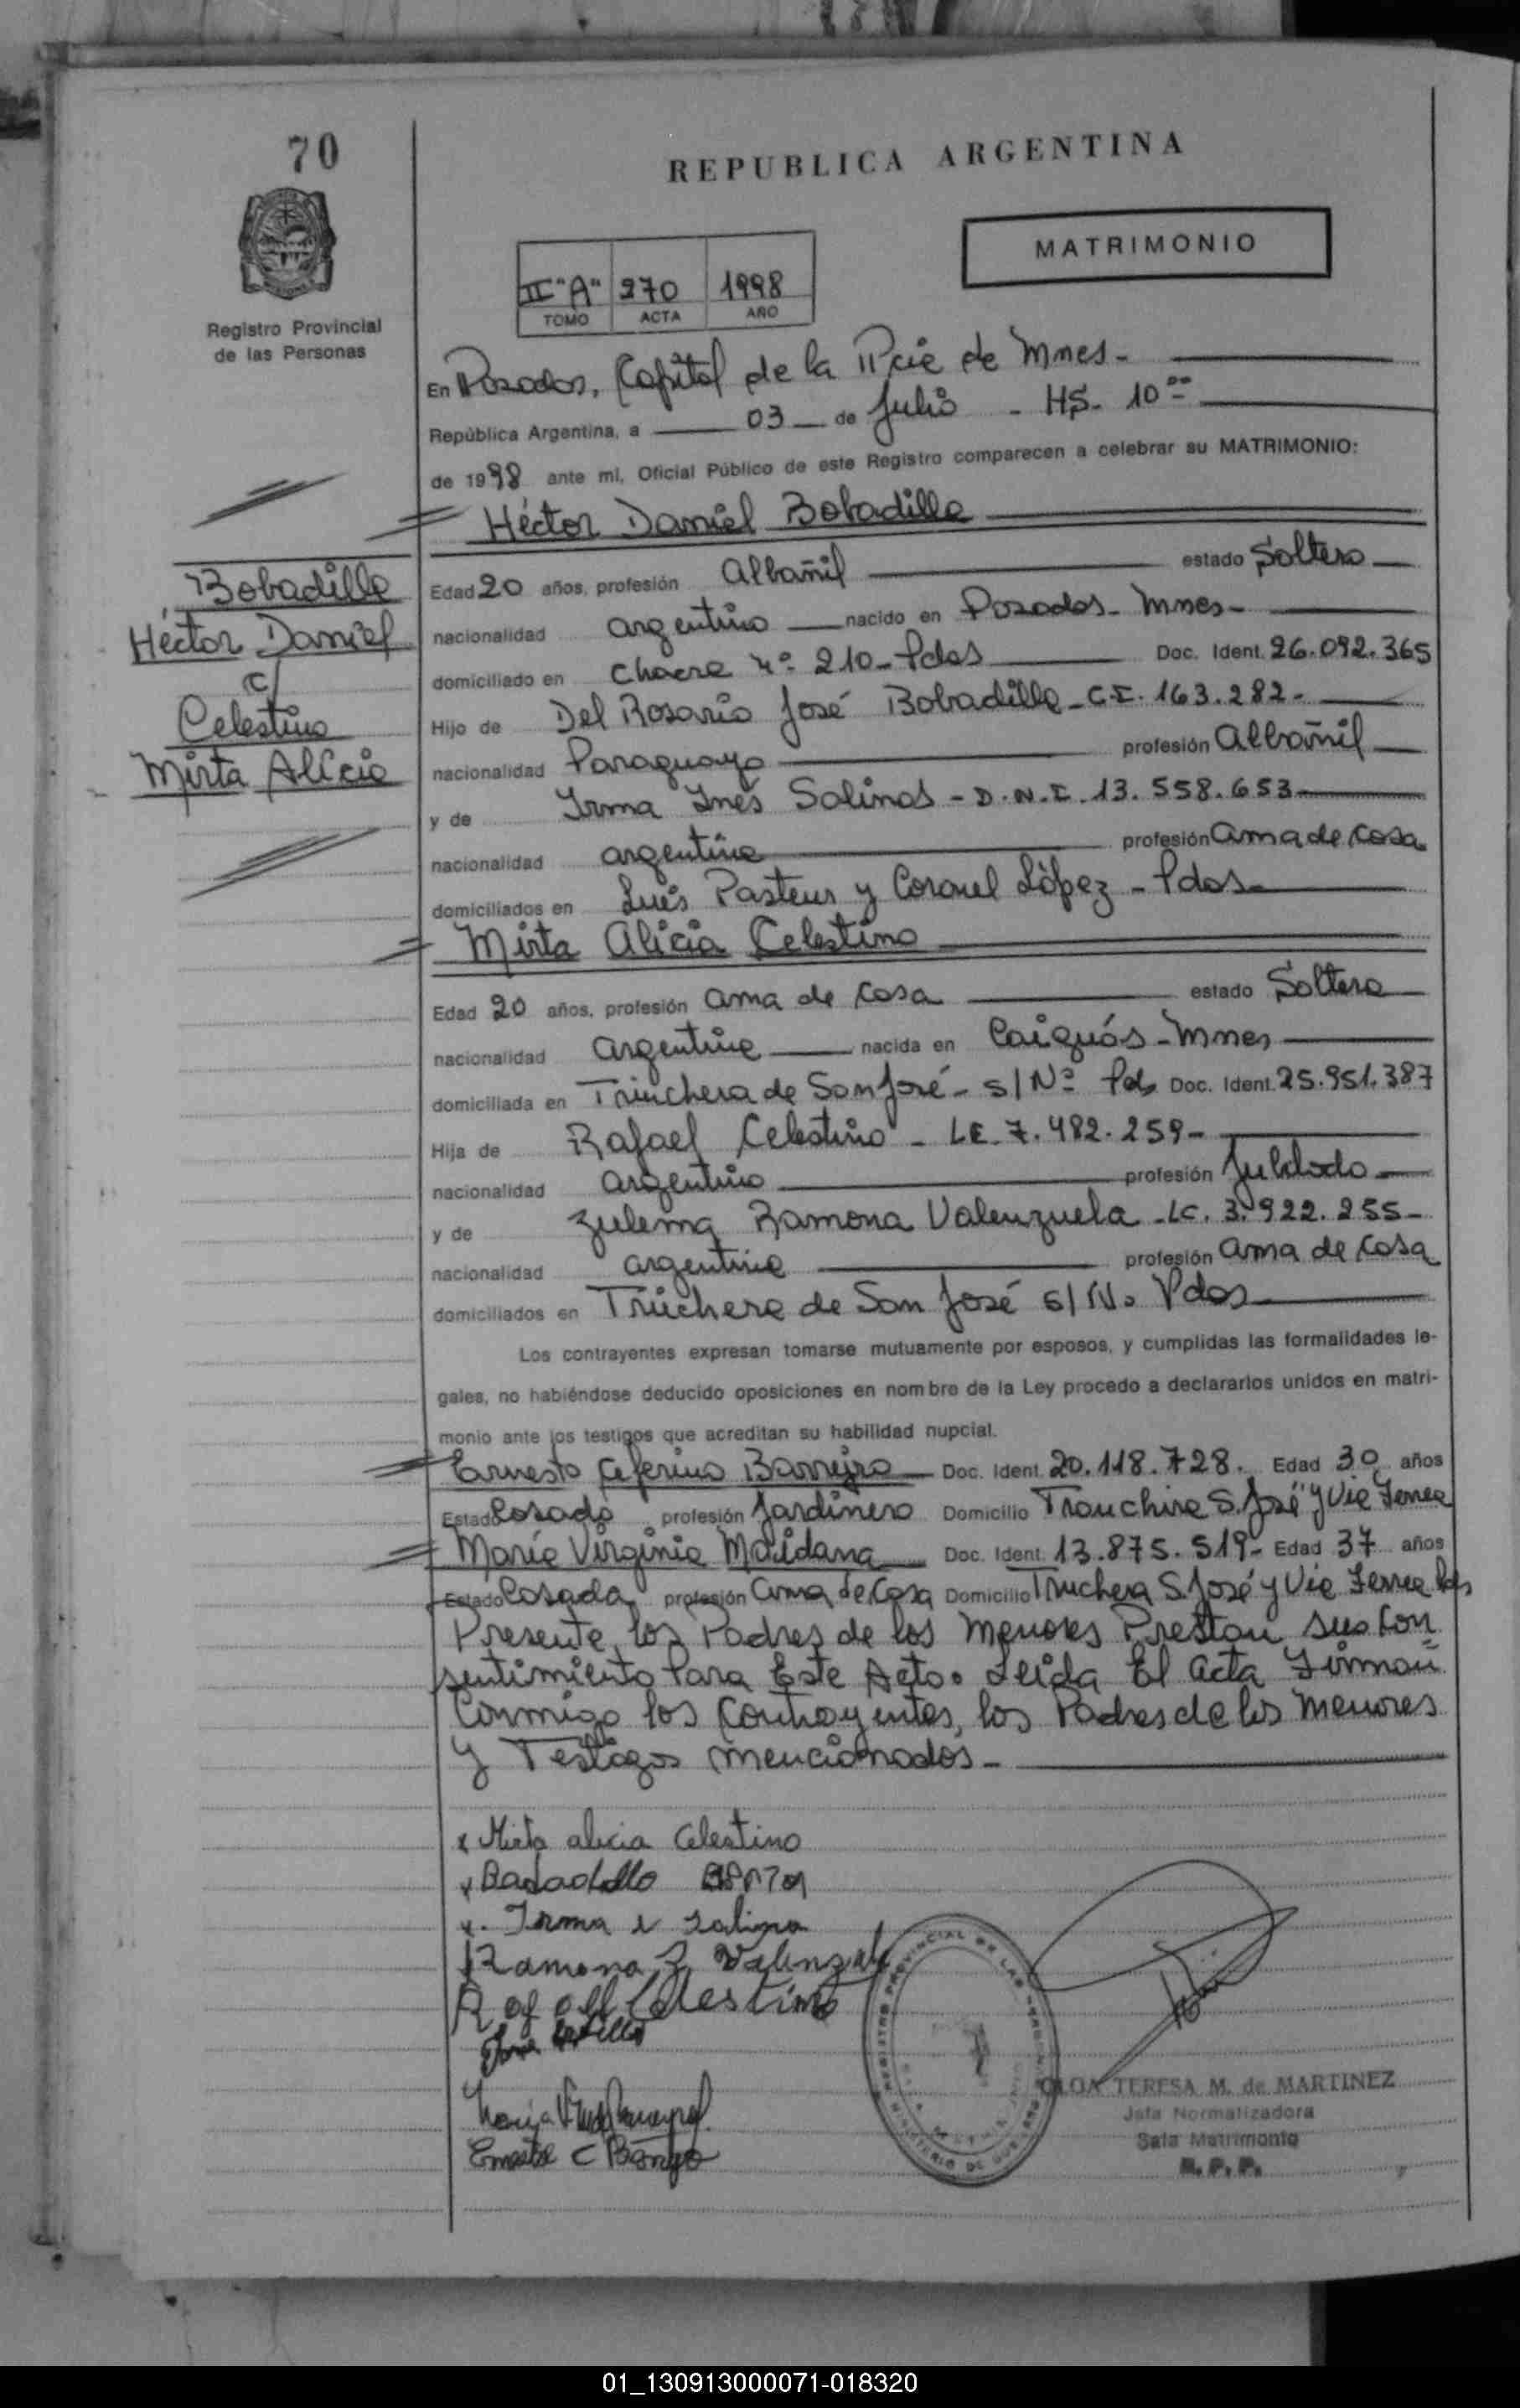 70
REPUBLICA ARGENTINA
MATRIMONIO
II "A" 270 1998
TOMO ACTA AÑO
Registro Provincial
de las Personas
En Posadas, Capital de la Pcie de Mnes-
República Argentina, a 03 de Julio - HS. 10 00
de 1998 ante mi, Oficial Público de este Registro comparecen a celebrar su MATRIMONIO:
Héctor Daniel Bobadilla
Bobadilla
Héctor Daniel
c/
Celestino
Mirta Alicia
Edad 20 años, profesión Albañil estado Soltero
nacionalidad argentino nacido en Posadas - Mnes-
domiciliado en Chacra Nº 210 - Pdas Doc. Ident. 26.092.365
Hijo de Del Rosario José Bobadilla - C.I. 163.282-
nacionalidad Paraguayo profesión albañil
y de Irma Inés Salinas - D.N.I. 13.558.653
nacionalidad argentina profesión ama de casa
domiciliados en Luis Pasteur y Coronel López - Pdas-
Mirta Alicia Celestino
Edad 20 años, profesión ama de casa estado Soltera
nacionalidad argentina nacida en Caiguás - Mnes
domiciliada en Trinchera de San José - s/Nº Pdas Doc. Ident. 25.951.387
Hija de Rafael Celestino - L.E. 7.482.259-
nacionalidad argentino profesión Jubilado
y de Zulema Ramona Valenzuela - L.C. 3.922.255-
nacionalidad argentina profesión ama de casa
domiciliados en Trinchera de San José s/N. Pdas
Los contrayentes expresan tomarse mutuamente por esposos, y cumplidas las formalidades le-
gales, no habiéndose deducido oposiciones en nombre de la Ley procedo a declararlos unidos en matri-
monio ante los testigos que acreditan su habilidad nupcial.
Ernesto Ceferino Barreyro Doc. Ident. 20.118.728. Edad 30 años
Estado Casado profesión Jardinero Domicilio Trinchera S. José y Vie Ferrea
Maria Virginia Maidana Doc. Ident. 13.875.519- Edad 37 años
Estado Casada profesión ama de Casa Domicilio Trinchera S. José y Vie Ferrea Pdas
Presente los Padres de los Menores Prestan sus Con
sentimiento Para Este Acto. Leída El acta Firman
Conmigo los Contrayentes, los Padres de los Menores
y Testigos mencionados-
x Mirta alicia Celestino
x Irma i Salina
Ramona Z Valenzuela
Rafael Celestino
Ernesto C Barreyro
REGISTRO PROVINCIAL DE LAS PERSONAS
OLGA TERESA M. de MARTINEZ
Jefa Normalizadora
Sala Matrimonio
R. P. P.
01_130913000071-018320